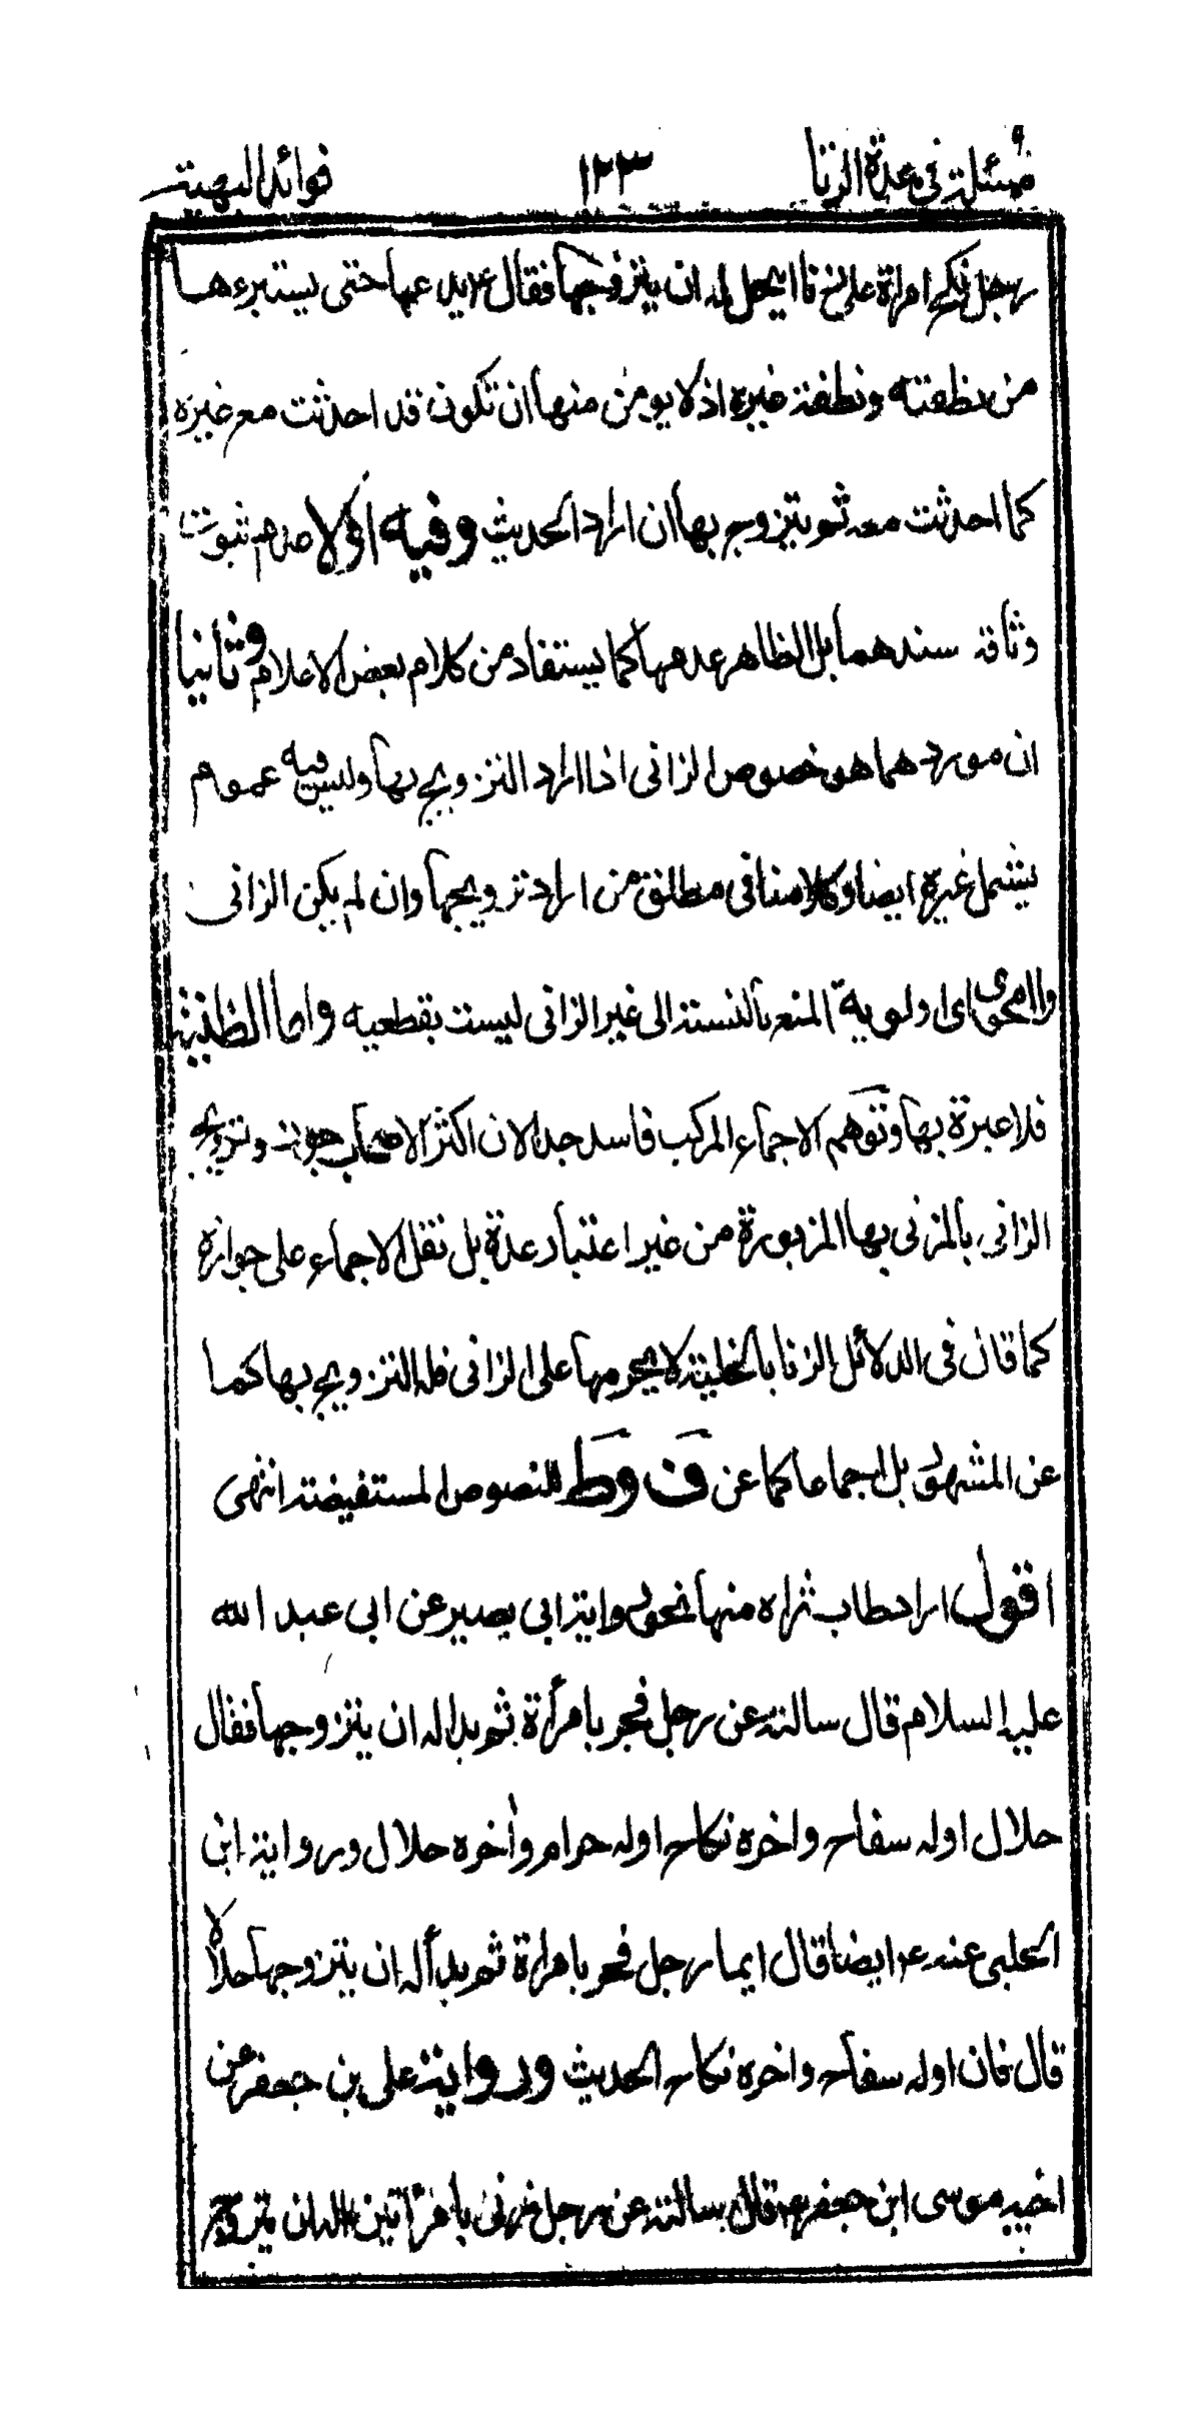 مسئلة في عدة الزنا ١٢٣ فوائد البهية
رجل نكح امراة على زنا ايحل له ان يتزوجها فقال ع يدعها حتى يستبرءها
من نطفته ونطفة غيره اذ لا يومن منها ان تكون قد احدثت مع غيره
كما احدثت معه ثم يتزوج بها ان اراد الحديث وفيه اولا عدم ثبوت
وثاقة سندهما بل الظاهر عدمها كما يستفاد من كلام بعض الاعلام وثانيا
ان موردهما هو خصوص الزانى اذا اراد التزويج بها وليس فيه عموم
يشمل غيره ايضا وكلامنا فى مطلق من اراد تزويجها وان لم يكن الزانى
اى اولوية المنع بالنسبة الى غير الزانى ليست بقطعيه واما الظنية
فلا عبرة بها وتوهم الاجماع المركب فاسد جدا لان اكثر الاصحاب جوزت وتزويج
الزانى بالمزنى بها المزبورة من غير اعتبار عدة بل نقل الاجماع على جوازه
كما قال فى الدلائل الزنا بالخلية لا يحرمها على الزانى فله التزويج بها كما
عن المشهور بل اجماعا كما عن ف وط للنصوص المستفيضة انتهى
اقول اراد طاب ثراه منها نحو رواية ابى بصير عن ابى عبد الله
عليه السلام قال سالته عن رجل فجر بامرأة ثم بدا له ان يتزوجها فقال
حلال اوله سفاح واخره نكاح اوله حرام وأخره حلال ورواية ابن
الحلبى عنه ع ايضا قال ايما رجل فجر بامراة ثم بدأ له ان يتزوجها حلالا
قال فان اوله سفاح واخره نكاح الحديث ورواية على بن جعفر عن
اخيه موسى ابن جعفر ع قال سالته عن رجل زنى بامرأتين اله ان يتزوج